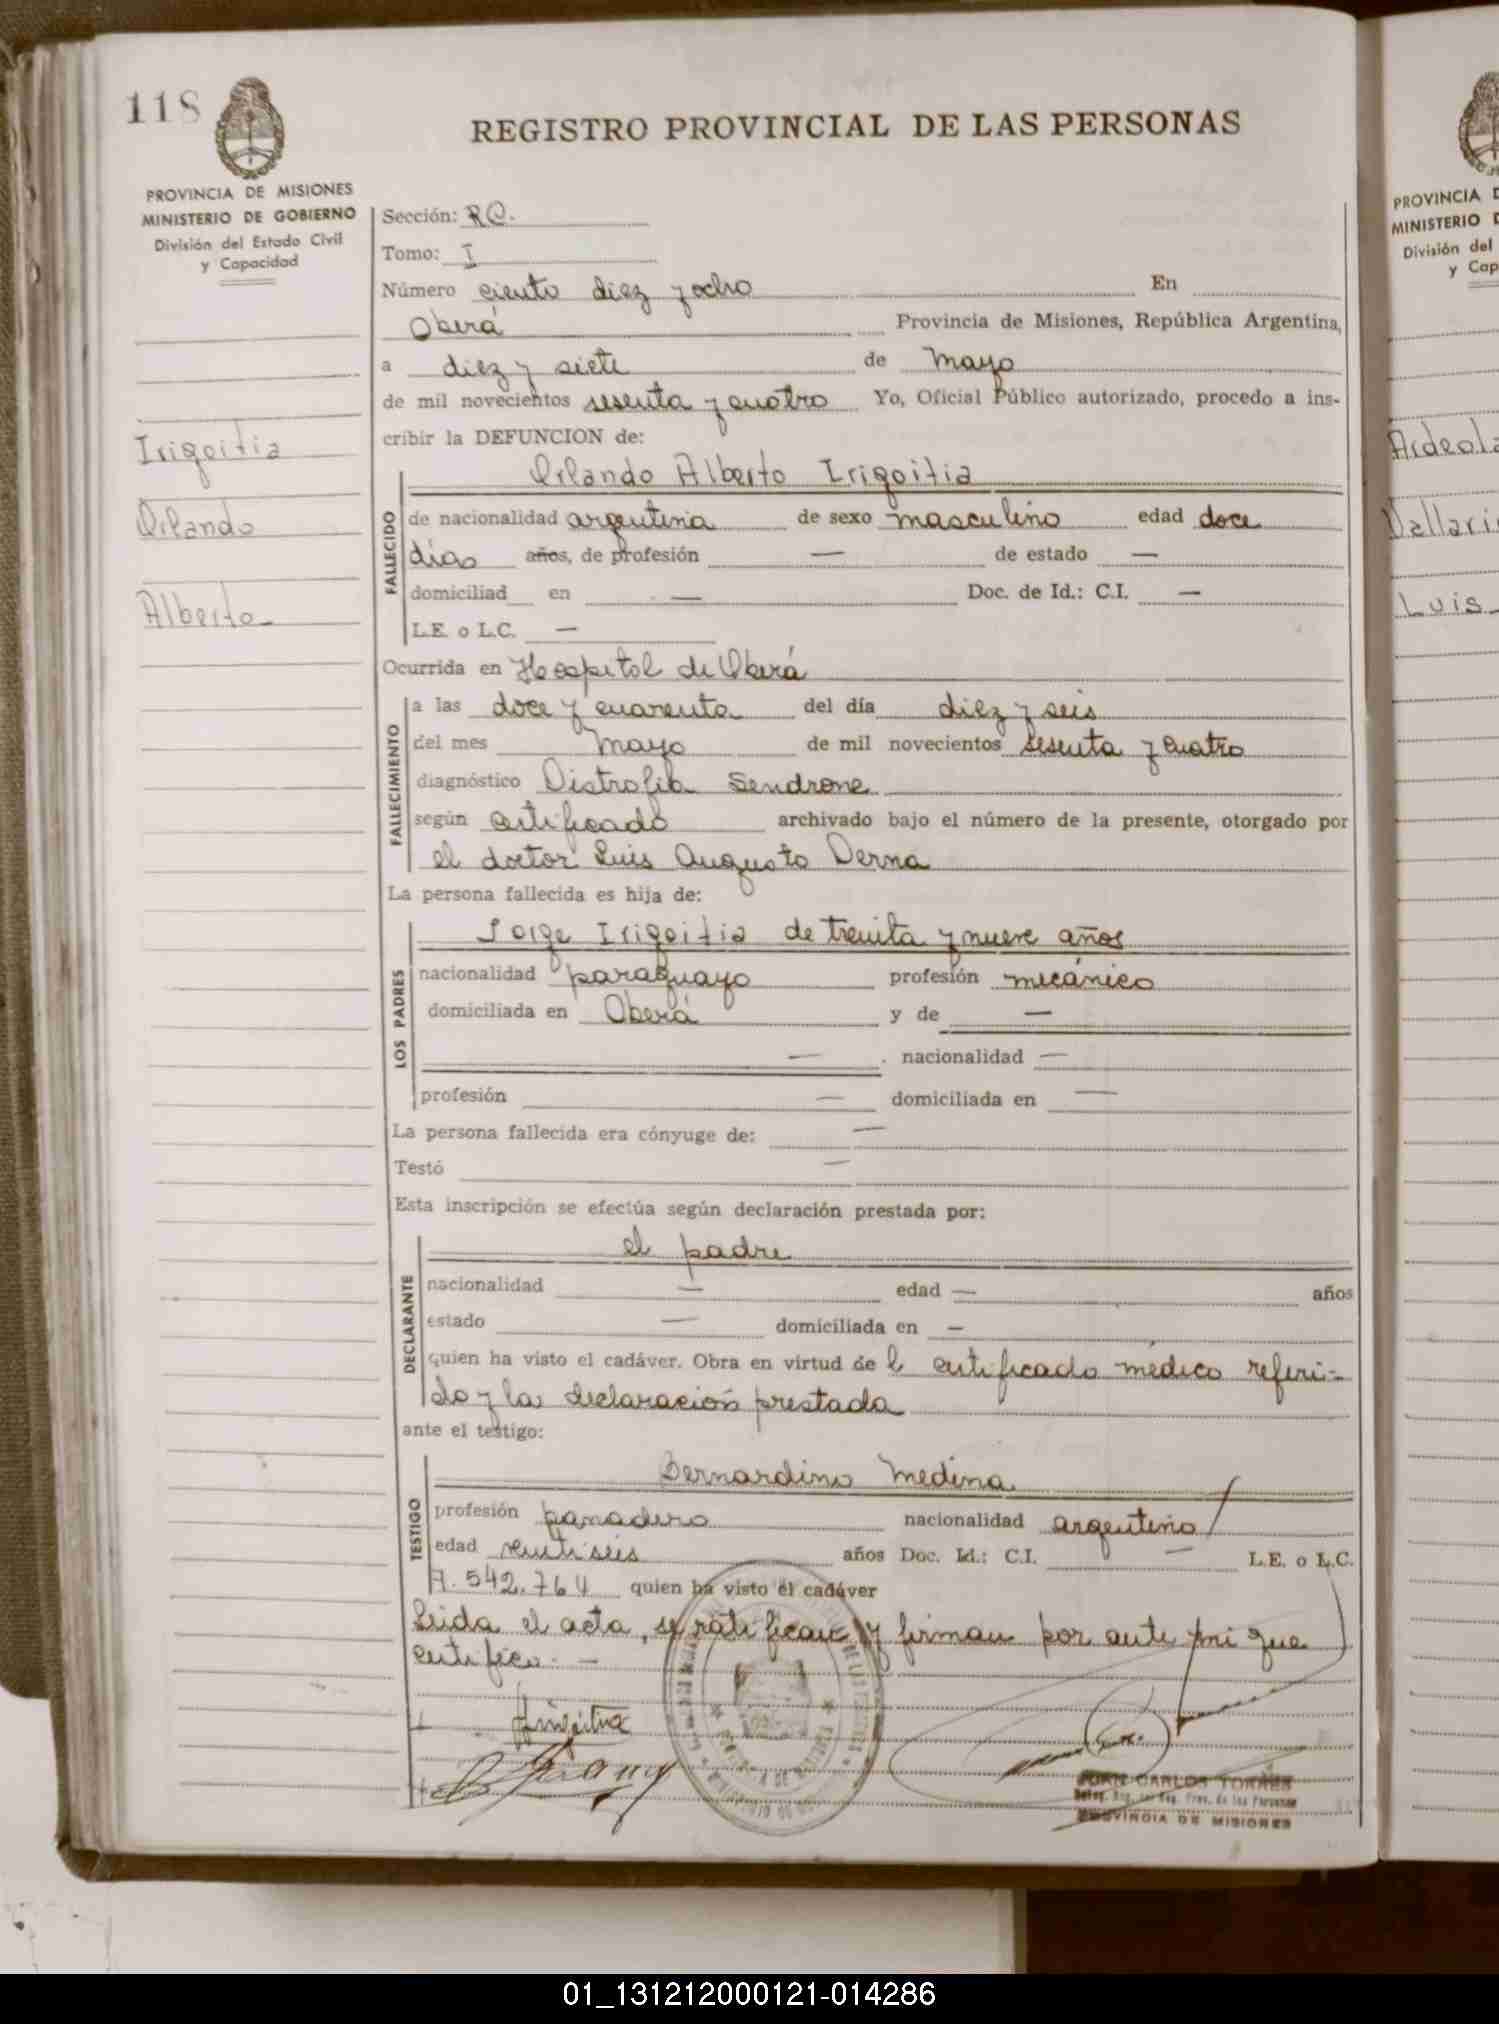 118
REGISTRO PROVINCIAL DE LAS PERSONAS
PROVINCIA DE MISIONES
MINISTERIO DE GOBIERNO
División del Estado Civil
y Capacidad
Irigoitia
Orlando
Alberto
Sección: RC.
Tomo: I
Número ciento diez y ocho En
Oberá Provincia de Misiones, República Argentina,
a diez y siete de Mayo
de mil novecientos sesenta y cuatro Yo, Oficial Público autorizado, procedo a ins-
cribir la DEFUNCION de:
FALLECIDO
Orlando Alberto Irigoitia
de nacionalidad argentina de sexo masculino edad doce
dias años, de profesión — de estado —
domiciliad en — Doc. de Id.: C.I. —
L.E. o L.C. —
Ocurrida en Hospital de Oberá
FALLECIMIENTO
a las doce y cuarenta del día diez y seis
del mes Mayo de mil novecientos sesenta y cuatro
diagnóstico Distrofia Sendrone
según certificado archivado bajo el número de la presente, otorgado por
el doctor Luis Augusto Derna
La persona fallecida es hija de:
LOS PADRES
Jorge Irigoitia de treinta y nueve años
nacionalidad paraguayo profesión mecánico
domiciliada en Oberá y de —
— . nacionalidad —
profesión — domiciliada en —
La persona fallecida era cónyuge de: —
Testó —
Esta inscripción se efectúa según declaración prestada por:
DECLARANTE
el padre
nacionalidad — edad — años
estado — domiciliada en —
quien ha visto el cadáver. Obra en virtud de l certificado médico referi-
do y la declaración prestada
ante el testigo:
TESTIGO
Bernardino Medina
profesión panadero nacionalidad argentino
edad veintiseis años Doc. Id.: C.I. — L.E. o L.C.
7.542.764 quien ha visto el cadáver
Leida el acta, se ratifican y firman por ante mi que
certifico. —
Irigoitia
JUAN CARLOS TORRES
PROVINCIA DE MISIONES
PROVINCIA D
MINISTERIO D
División del
y Cap
Ardeola
Vallari
Luis
01_131212000121-014286